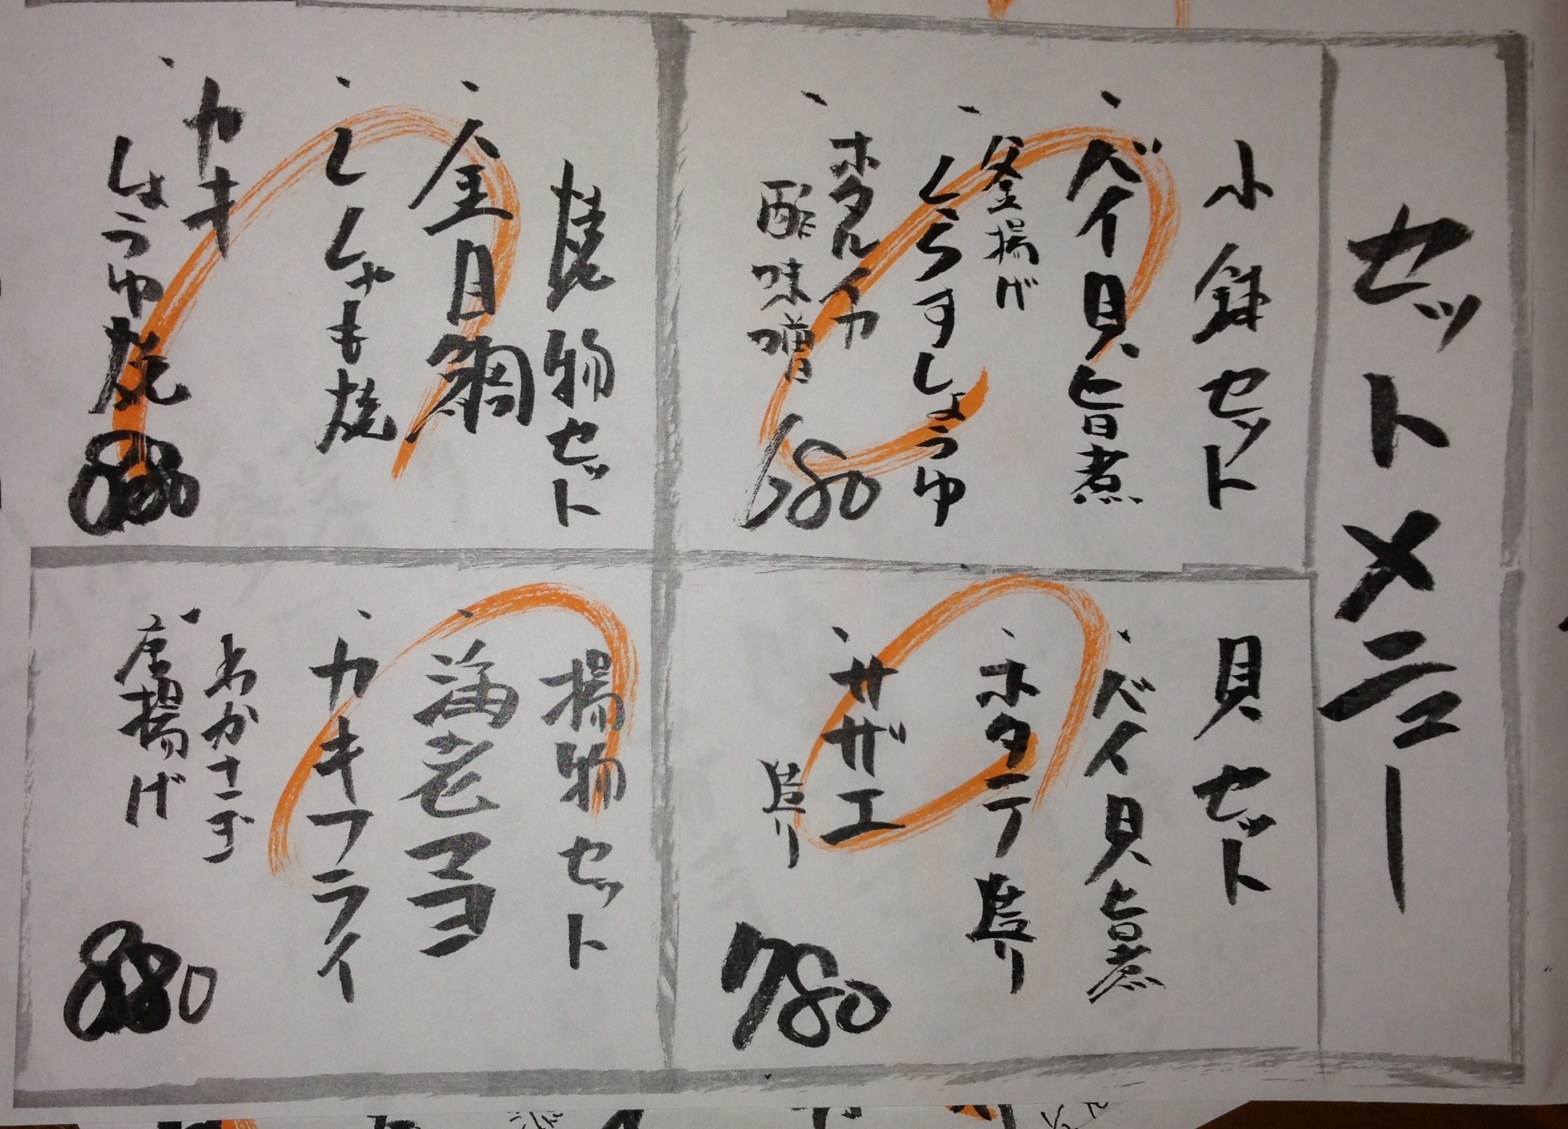 セットメニュー
小鉢セット
、バイ貝旨煮
、釜揚げ
しらすしょうゆ
、ホタルイカ
酢味噌
680
貝セット
、バイ貝旨煮
、ホタテ塩炙り
、サザエ
塩炙り
780
焼物セット
、金目鯛
、ししゃも焼
、カキ
しょうゆ焼
880
揚物セット
、海老マヨ
、カキフライ
、わかさぎ
唐揚げ
880